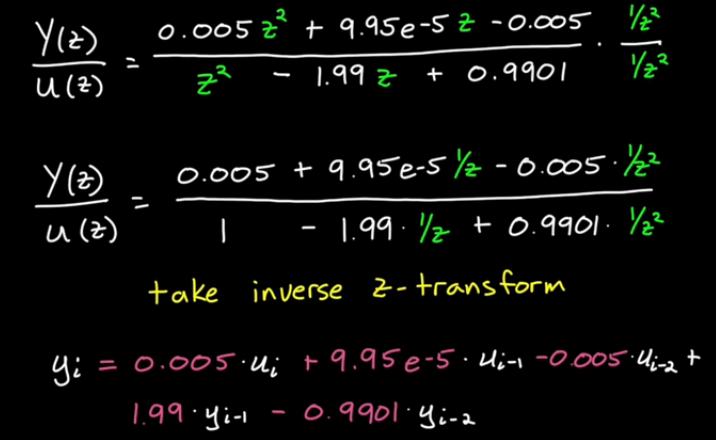 Y(z)/u(z) = (0.005 z² + 9.95e-5 z - 0.005)/(z² - 1.99 z + 0.9901) · (1/z²)/(1/z²)
Y(z)/u(z) = (0.005 + 9.95e-5 1/z - 0.005 · 1/z²)/(1 - 1.99 · 1/z + 0.9901 · 1/z²)
take inverse z-transform
yᵢ = 0.005 · uᵢ + 9.95e-5 · uᵢ₋₁ - 0.005 · uᵢ₋₂ +
1.99 · yᵢ₋₁ - 0.9901 · yᵢ₋₂